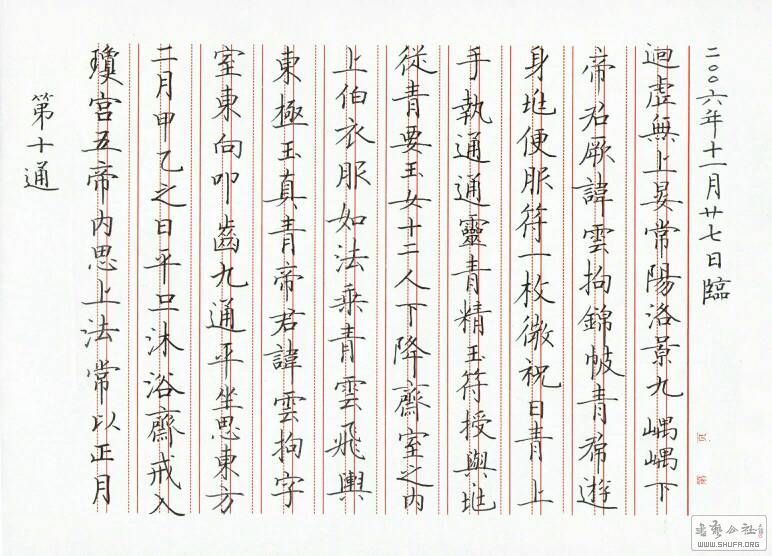 第十通
瓊宮五帝內思上法常以正月
二月甲乙之日平旦沐浴齋戒入
室東向叩齒九通平坐思東方
東極玉真青帝君諱雲拘字
上伯衣服如法乘青雲飛輿
從青要玉女十二人下降齋室之內
手執通通靈青精玉符授與兆
身兆便服符一枚微祝曰青上
帝君厥諱雲拘錦帔青帬遊
迴虛無上晏常陽洛景九嵎嵎下
二〇〇六年十一月廿七日臨
书艺公社
WWW.SHUFA.ORG